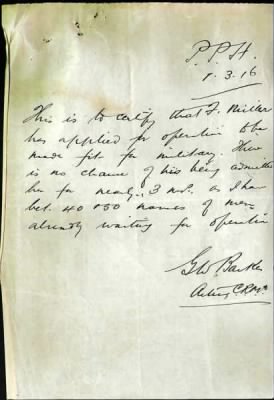 P.P.H.
1.3.16
This is to certify that F. Miller
has applied for operatin to be
made fit for military. There
is no chance of his being admitted
here for nearly 3 mos. as I have
bet. 40 & 50 names of men
already waiting for operatin
Barker
Acting